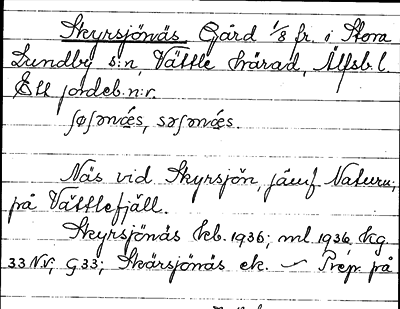 Skyrsjönäs Gård 1/8 fr. i Stora
Lundby s:n, Vättle härad, Älfsb. l.
Ett jordeb.n:r.
Näs vid Skyrsjön, jämf Naturn;
på Vättlefjäll.
Skyrsjönäs kb. 1936; ml 1936, kg
33 N.V; G 33; Skärsjönäs ek. – Prep. på